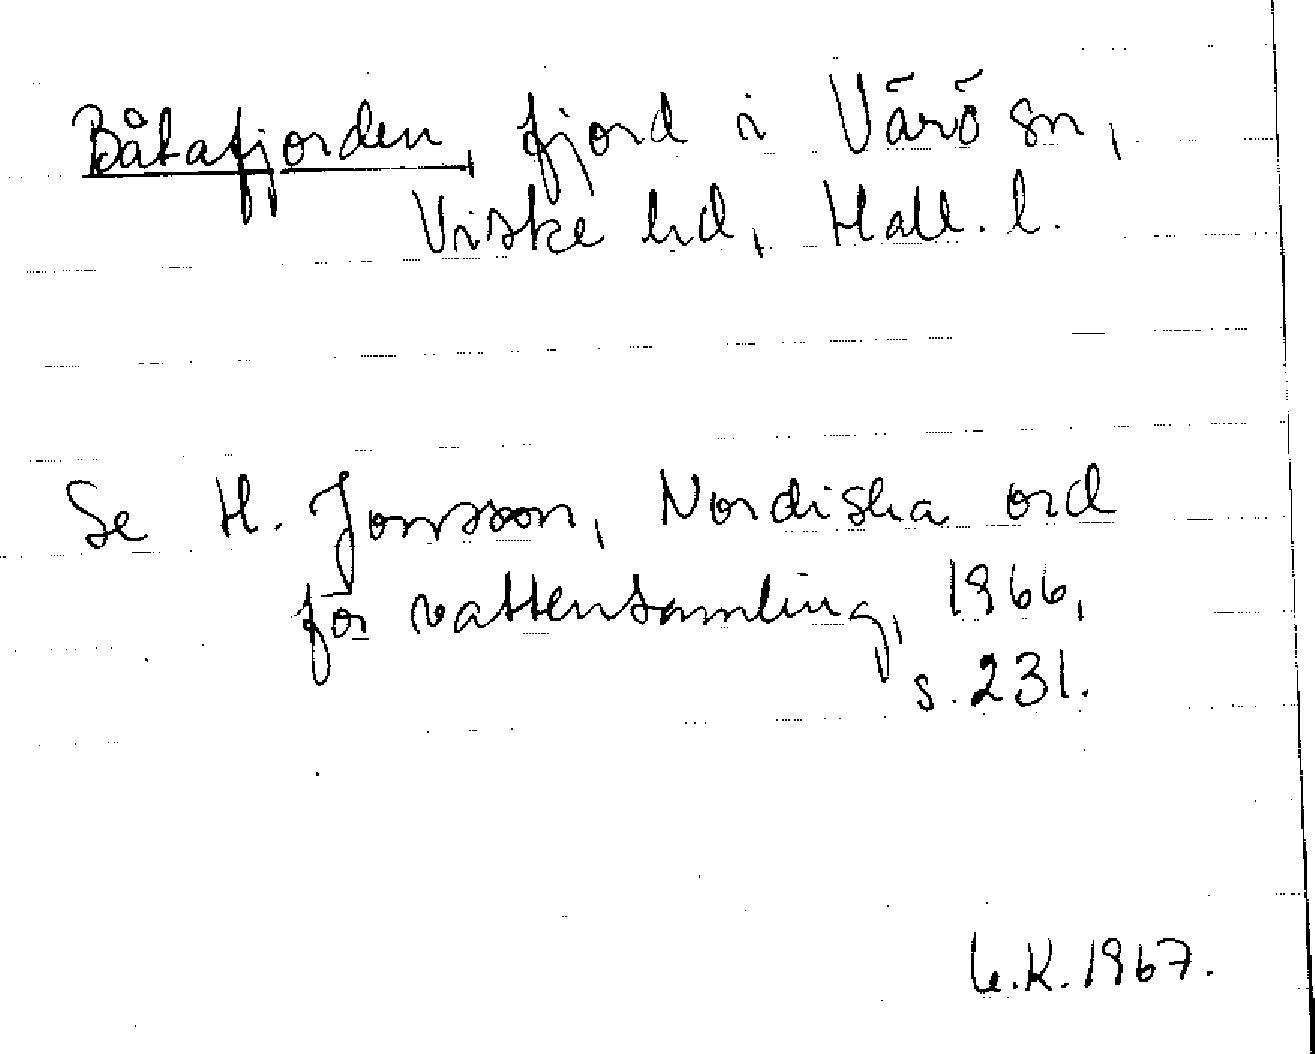 Båtafjorden, fjord i Värö sn,
Viske hd, Hall. l.
Se H. Jonsson, Nordiska ord
för vattensamling, 1966,
s. 231.
K. 1967.